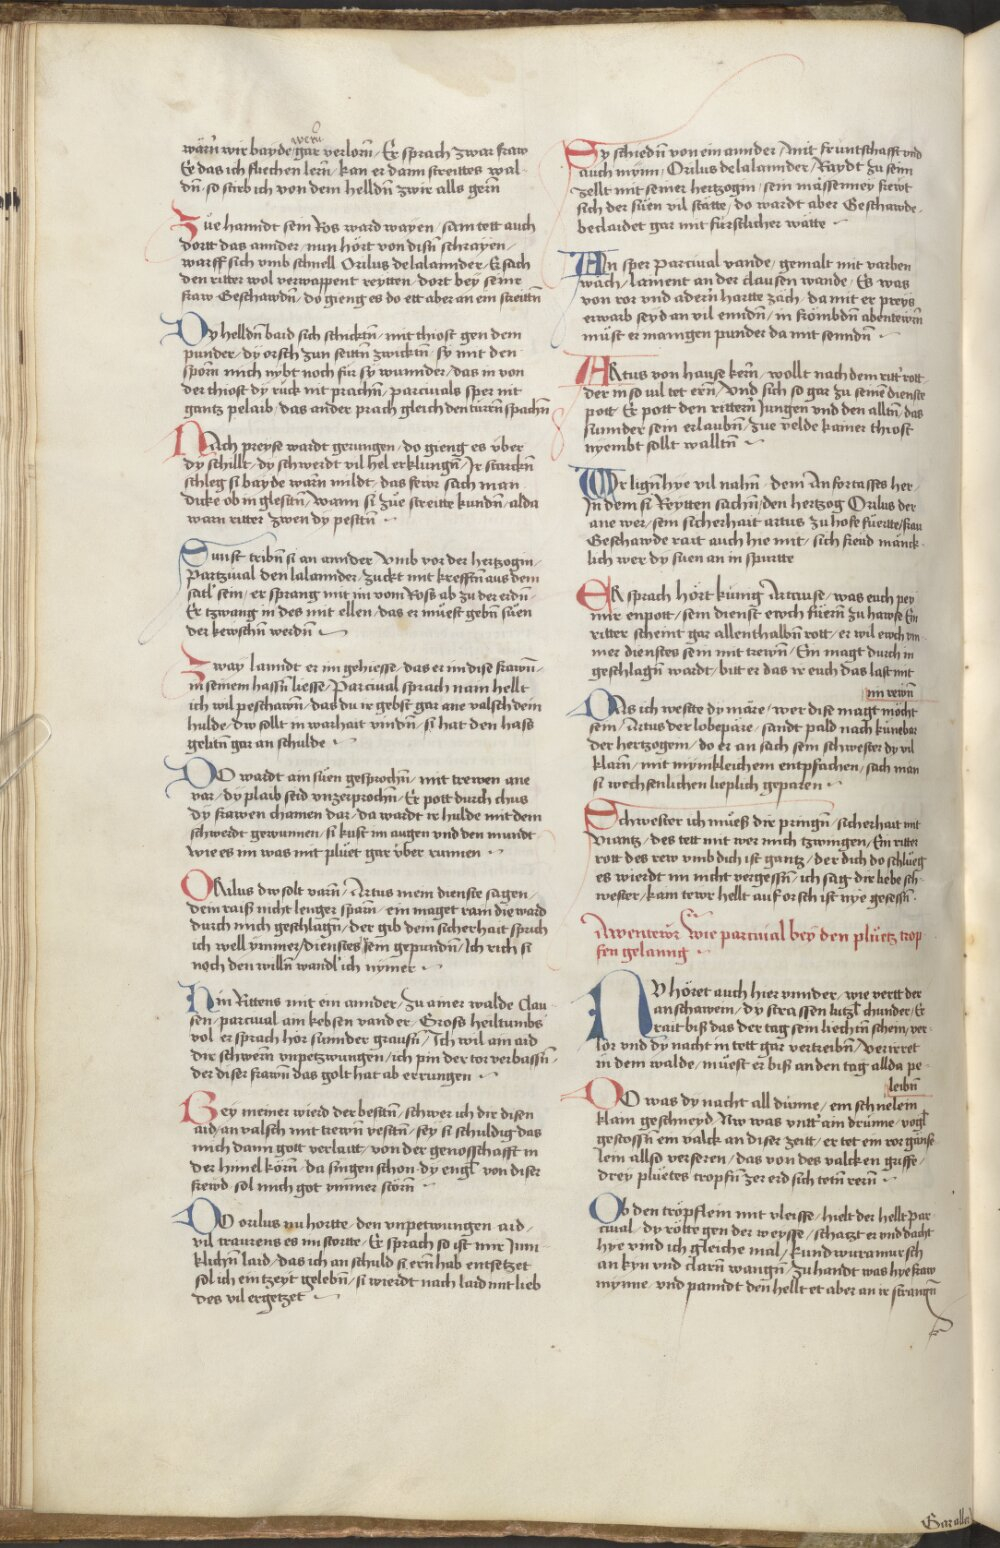 wern
wärn wir bayde gar verlorn / Er sprach zwar fraw
Er das ich fliechen lern / kan er dann streittes wal-
dn̄ / so stirb ich von dem helldn̄ zwir alls gern
Zue hanndt sein Ros ward wayen / sam tett auch
dortt das annder / nun hört von disn̄ schrayen /
warff sich vmb schnell Orilus de lalannder / Er sach
den ritter wol verwappent reytten / dort bey seine
fraw Geschawdn̄ / do gieng es do ett aber an ein streittn̄
Dy helldn̄ baid sich schicktn̄ / mit thiost gen dem
punder / dy orsch zun seittn̄ zwicktn̄ / sy mit den
sporn mich nybt noch für sy wunnder / das in von
der thiost dy rück nit prachn̄ / parciuals sper nit
gantz pelaib / das ander prach gleich den turrn̄ spachn̄
Nach preyse wardt gerungen / do gieng es vber
dy schillt / dy schwerdt vil hel erklungn̄ / Ir starckn̄
schleg si bayde warn mildt / das fewr sach man
dicke ob in glestn̄ / wann si zue streitte kundn̄ / alda
warn ritter zwen dy pestn̄
Sunst tribn̄ si an annder / Vmb vor der hertzogin /
Partziual den lalannder / zuckt mit krefftn̄ aus dem
satl sein / er sprang mit im vom Ross ab zu der erdn̄ /
Er tzwang in des mit ellen / das er müest gebn̄ süen
der kewschn̄ werdn̄
Zway lanndt er im gehiesse / das er im dise frawn̄ /
in seinem hassn̄ liesse / Parciual sprach nain hellt
ich wil peschawn̄ / das du ir gebst gar ane valsch dein
hulde / dw sollt in warhait vindn̄ / si hat den hass
gelitn̄ gar an schulde
Do wardt ain süen gesprochn̄ / mit trewen ane
var / dy plaib seid vnzerprochn̄ / Er pott durch chus
dy frawen chamen dar / da wardt ir hulde mit dem
schwerdt gewunnen / si kust im augen vnd den mundt
wie es im was mit pluet gar vber runnen
Orilus dw solt varn̄ / Artus mein dienste sagen /
dein raiss nicht lenger sparn̄ / ein maget rain die ward
durch mich geschlagn̄ / der gib dein sicherhait sprich
ich well ymmer / dienstes sein gepundn̄ / Ich rich si
noch den willn̄ wandl ich nymer
Hin Rittens mit ein annder / zu ainer walde Clau-
sen / parciual am kebsen vander / Gross heiltumbs
vol / er sprach hör sunnder grausn̄ / Ich wil ain aid
dir schwern vnpetzwungen / ich pin der tor verbassn̄
der diser frawn̄ das golt hat ab errungen
Bey meiner wierd der bestn̄ / schwer ich dir disen
aid / an valsch mit trewn̄ vestn̄ / sey si schuldig das
mich dann gott verlaitt / von der genosschafft in
der himel körn̄ / da singen schon dy engl / von diser
frewd sol mich got ymmer störn̄
Do orilus nu hortte / den vnpetwungen aid /
vil traurens es im stortte / Er sprach so ist mir Jnn-
klichn̄ laid / das ich an schuld si ern̄ hab entsetzet
sol ich ein tzeyt gelebn̄ / si wierdt nach laid mit lieb
des vil ergetzet
Sy schiedn̄ von ein annder / mit fruntschafft vnd
auch mynn / Orilus de lalannder / Raydt zu seim
zellt mit seiner hertzogin / sein mässenney frewt
sich der süen vil stätte / do wardt aber Geschawde
beclaidet gar mit fürstlicher wätte
Ain sper Parciual vande / gemalt mit varben
wach / lament an der clausen wande / Es was
von ror vnd adern hartte zäch / da mit er preys
erwarb seyd an vil enndn̄ / in frömbdn̄ abentewrn
müst er manigen punder da mit senndn̄
Artus von hause kern / wollt nach dem rittr rott
der in so vil tet ern̄ / Vnd sich so gar zu seine dienste
pott / Er pott den rittern Jungen vnd den alltn̄ / das
sunnder sein erlaubn̄ / zue velde kainer thiost
nyembt sollt walltn̄
Wir lign̄ hye vil nahn̄ / dem Anfortasses her /
In dem si Reytten sachn̄ / den hertzog Orilus der
ane wer / sein sicherhait artus zu hofe füertte / fraw
Geschawde rait auch hie mit / sich frewd mänck-
lich wer dy süen an in spurtte
Er sprach hört küng Artuse / was euch pey
mir enpott / sein dienst ewch füern zu hawse Ein
ritter scheint gar allenthalbn̄ rott / er wil ewch ym-
mer dienstes sein mit trewn̄ / Ein magt durch in
geschlagn̄ wardt / bitt er das ir euch das last mit
im rewn̄
Als ich weste dy märe / wer dise magt möcht
sein / Artus der lobepäre / sandt pald nach künebar
der hertzogein / do er an sach sein schwester dy vil
klarn / mit mynikleichem entpfachen / sach man
si wechsenlichen lieplich geparen
Schwester ich müeß dir pringn̄ / sicherhait mit
Viantz / des tett mit wer mich tzwingen / Ein ritter
rott des rew vmb dich ist gantz / der dich do schlueg
es wierdt im nicht vergessn̄ / ich sag dir liebe sch-
wester / kain tewr hellt auf orsch ist nye gesessn̄
Awentewr Wie parciual bey den pluetz trop
fen gelanng
Nv höret auch hier vnnder / wie verrt der
anschawein / dy strassen lutzl chunder / Er
rait biß das der tag sein liechtn̄ schein / ver-
lor vnd dy nacht in tett gar vertreibn̄ / Verirret
in dem walde / müest er biß an den tag allda pe-
leibn̄
Do was dy nacht all dünne / ein schnelein
klain geschneyd / Nw was vntt ain drünne / vogl
gestossn̄ ein valck an diser zeitt / er tet ein vor gänse-
lein allso verseren / das von des valcken griffe /
drey pluetes tropfn̄ zer erd sich tetn̄ rern̄
Ob den tröpflein mit vleisse / hielt der hellt Par-
ciual / dy rötte gen der weysse / schatzt er vnd dacht
hye vind ich gleiche mal / kundwuramursch
an kyn vnd clarn̄ wangn̄ / zu handt was hye fraw
mynne / vnd panndt den hellt et aber an ir strangn̄
Gar aller